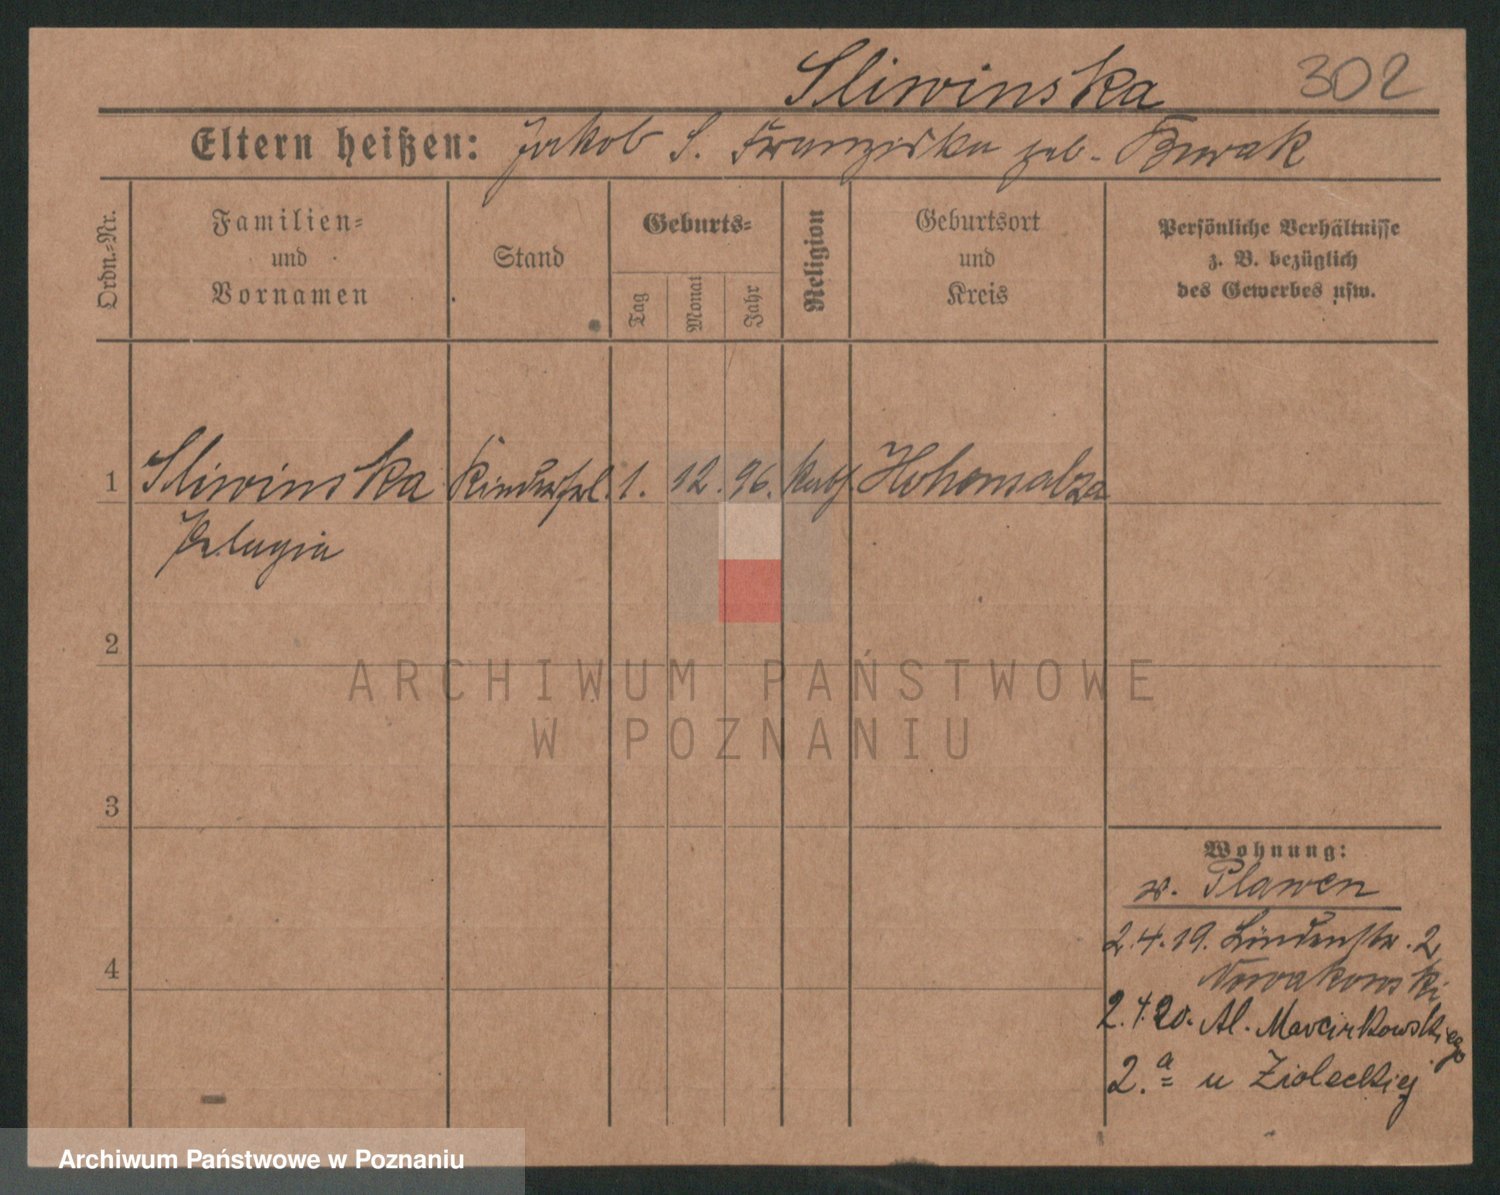 Sliwinska 302
Eltern heißen: Jakob S. Franziska geb. Burak
Ordn.-Nr.
Familien-
und
Vornamen
Stand
Geburts-
Tag
Monat
Jahr
Religion
Geburtsort
und
Kreis
Persönliche Verhältnisse
z. B. bezüglich
des Gewerbes usw.
1 Sliwinska Kinderfrl. 1. 12. 96. kath. Hohensalza
Pelagia
2
3
4
Wohnung:
v. Plawen
2.4.19. Lindenstr. 2
Nowakowski
2.4.20. Al. Marcinkowskiego
2.a u Zioleckiej
ARCHIWUM PAŃSTWOWE
W POZNANIU
Archiwum Państwowe w Poznaniu